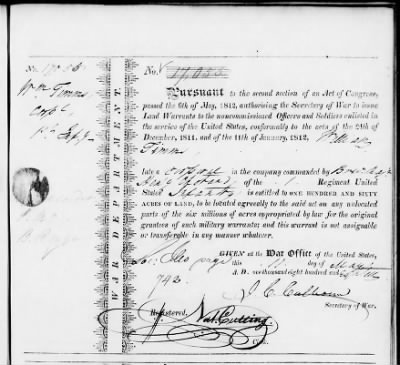 No. 17,055
No. 17,055
Wm Timms
Corpl
PURSUANT to the second section of an Act of Congress,
passed the 6th of May, 1812, authorising the Secretary of War to issue
Land Warrants to the noncommissioned Officers and Soldiers enlisted in
the service of the United States, conformably to the acts of the 24th of
December, 1811, and of the 11th of January, 1812, William
Timms
late a corporal in the company commanded by
of the Regiment United
States
is entitled to ONE HUNDRED AND SIXTY
ACRES OF LAND, to be located agreeably to the said act on any unlocated
parts of the six millions of acres appropriated by law for the original
grantees of such military warrants; and this warrant is not assignable
or transferable in any manner whatever.
WAR DEPARTMENT.
GIVEN at the War Office of the United States,
this day of
A. D. one thousand eight hundred and
page
742
J. C. Calhoun
Secretary of War.
Registered, Nat. Cutting,
Clk.